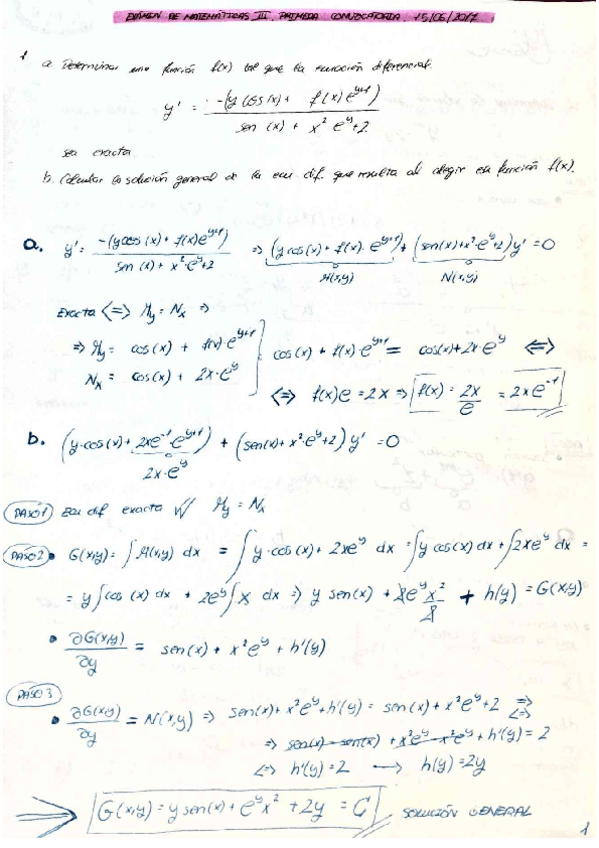 EXÁMEN DE MATEMÁTICAS III. PRIMERA CONVOCATORIA. 15/06/2017
1 a. Determinar una función f(x) tal que la ecuación diferencial
y' = -(y cos(x) + f(x)e^{y+1}) / sen(x) + x² e^y + 2
sea exacta
b. Calcular la solución general de la ecu dif. que resulta al elegir esa función f(x).
a. y' = -(y cos(x) + f(x)e^{y+1}) / sen(x) + x²·e^y + 2 => (y cos(x) + f(x)·e^{y+1}) + (sen(x) + x²·e^y + 2) y' = 0
M(x,y) N(x,y)
Exacta <=> My = Nx =>
=> My = cos(x) + f(x)·e^{y+1}
Nx = cos(x) + 2x·e^y
cos(x) + f(x)·e^{y+1} = cos(x) + 2x·e^y <=>
<=> f(x)e = 2x => f(x) = 2x/e = 2xe^{-1}
b. (y·cos(x) + 2xe^{-1}·e^{y+1}) + (sen(x) + x²·e^y + 2) y' = 0
2x·e^y
PASO 1 Ecu dif exacta My = Nx
PASO 2 • G(x,y) = ∫ M(x,y) dx = ∫ y·cos(x) + 2xe^y dx = ∫ y cos(x) dx + ∫ 2xe^y dx =
= y ∫ cos(x) dx + 2e^y ∫ x dx => y sen(x) + 2e^y x²/2 + h(y) = G(x,y)
• ∂G(x,y)/∂y = sen(x) + x²e^y + h'(y)
PASO 3
• ∂G(x,y)/∂y = N(x,y) => sen(x) + x²e^y + h'(y) = sen(x) + x²e^y + 2 <=>
=> sen(x) - sen(x) + x²e^y - x²e^y + h'(y) = 2
<=> h'(y) = 2 → h(y) = 2y
=> G(x,y) = y sen(x) + e^y x² + 2y = C SOLUCIÓN GENERAL
1